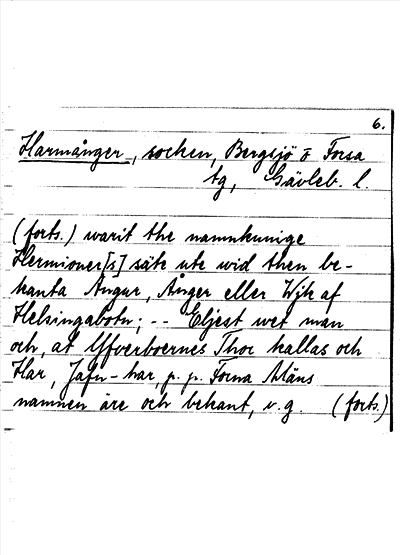 6.
Harmånger, socken, Bergsjö o Forsa
tg, Gävleb. l.
(forts.) warit the namnkunige
Hermioner[s] säte ute wid then be-
kanta Angur, Ånger eller Wjk af
Helsingabotn; -- Eljest wet man
och, at Yfverboernes Thor kallas och
Har, Jafn-har, p. p. Forna Mäns
namnen äre och bekant, v. g. (forts.)